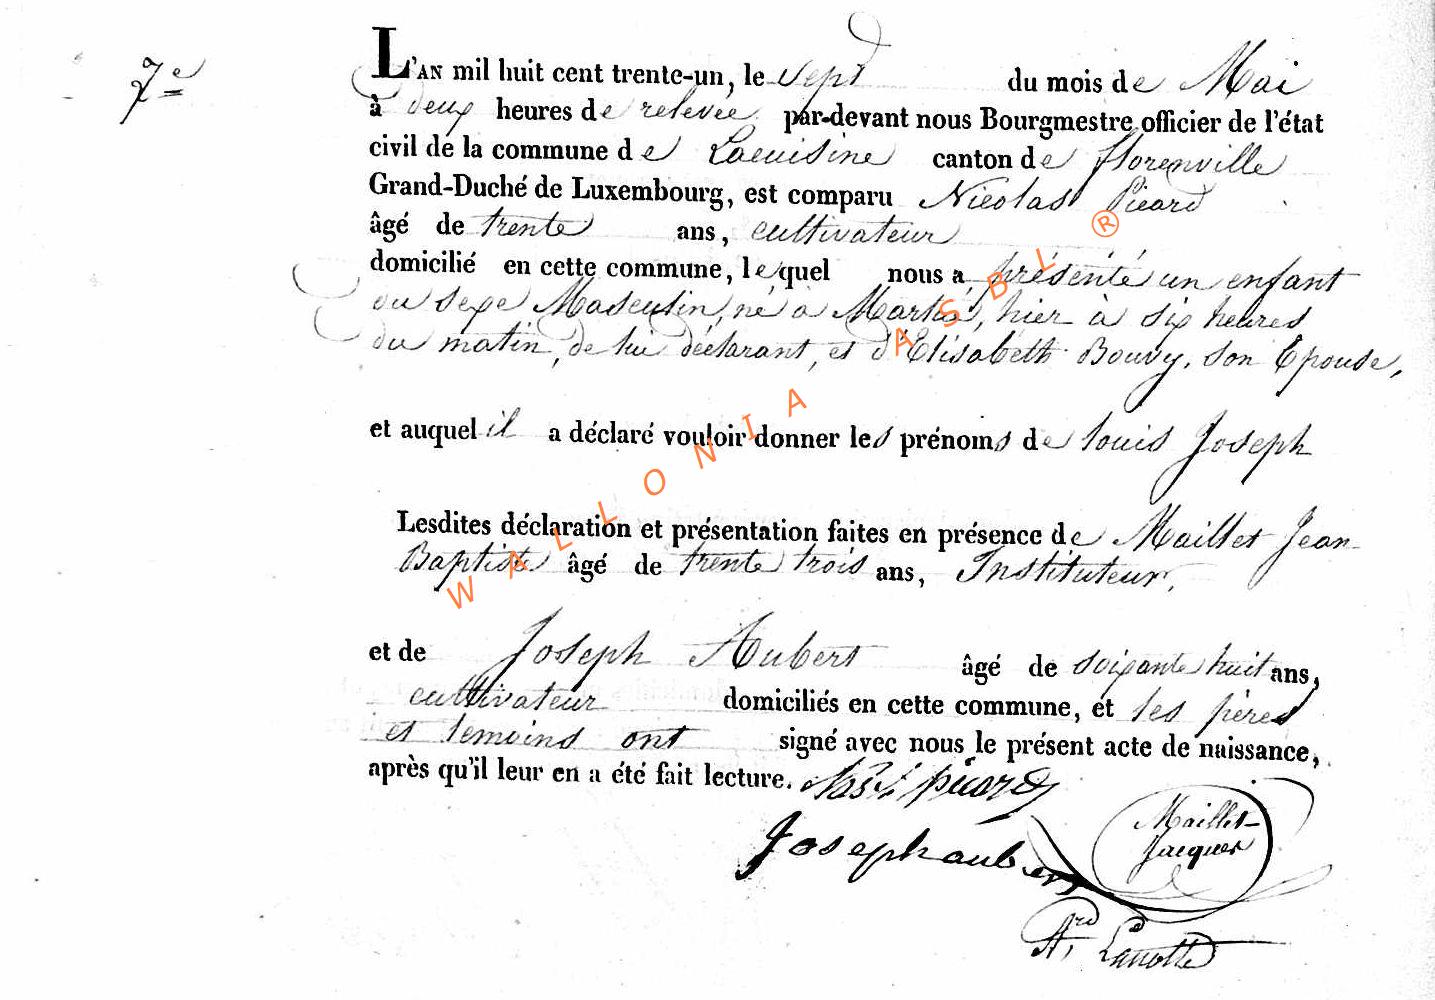 7e
L'AN mil huit cent trente-un, le sept du mois de Mai
à deux heures de relevée par-devant nous Bourgmestre officier de l'état
civil de la commune de Lacuisine canton de florenville
Grand-Duché de Luxembourg, est comparu Nicolas Picard
âgé de trente ans, cultivateur
domicilié en cette commune, lequel nous a présenté un enfant
du sexe Masculin, né à Martué, hier à six heures
du matin, de lui déclarant, et d'Elisabeth Bouvy, son Epouse,
et auquel il a déclaré vouloir donner les prénoms de louis Joseph
Lesdites déclaration et présentation faites en présence de Maillet Jean
Baptiste âgé de trente trois ans, Instituteur,
et de Joseph Aubert âgé de soixante huit ans,
cultivateur domiciliés en cette commune, et les pères
et temoins ont signé avec nous le présent acte de naissance,
après qu'il leur en a été fait lecture. picard
Maillet
Jacques
Joseph aubert
Lanotte
WALLONIA ASBL ®